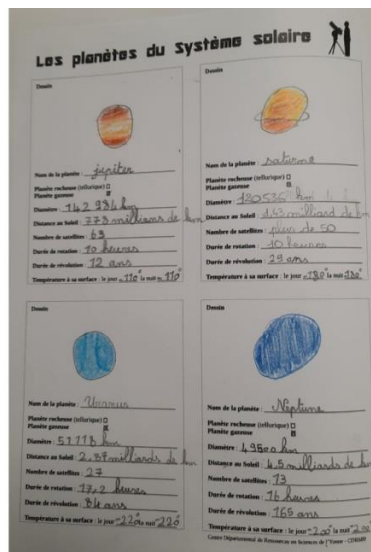 Les planètes du Système solaire
Dessin
Nom de la planète : jupiter
Planète rocheuse (tellurique)
Planète gazeuse
Diamètre : 142 984 km
Distance au Soleil : 778 millions de km
Nombre de satellites : 63
Durée de rotation : 10 heures
Durée de révolution : 12 ans
Température à sa surface : le jour -110° la nuit -110°
Dessin
Nom de la planète : saturne
Planète rocheuse (tellurique)
Planète gazeuse
Diamètre : 120536 km
Distance au Soleil : 1.43 milliard de km
Nombre de satellites : plus de 50
Durée de rotation : 10 heures
Durée de révolution : 29 ans
Température à sa surface : le jour -180° la nuit -180°
Dessin
Nom de la planète : Uranus
Planète rocheuse (tellurique)
Planète gazeuse
Diamètre : 51118 km
Distance au Soleil : 2.87 milliards de km
Nombre de satellites : 27
Durée de rotation : 17,2 heures
Durée de révolution : 84 ans
Température à sa surface : le jour -220° la nuit -220°
Dessin
Nom de la planète : Neptune
Planète rocheuse (tellurique)
Planète gazeuse
Diamètre : 49500 km
Distance au Soleil : 4.5 milliards de km
Nombre de satellites : 13
Durée de rotation : 16 heures
Durée de révolution : 165 ans
Température à sa surface : le jour -200° la nuit -200°
Centre Départemental de Ressources en Sciences de l'Yonne - CDRS89